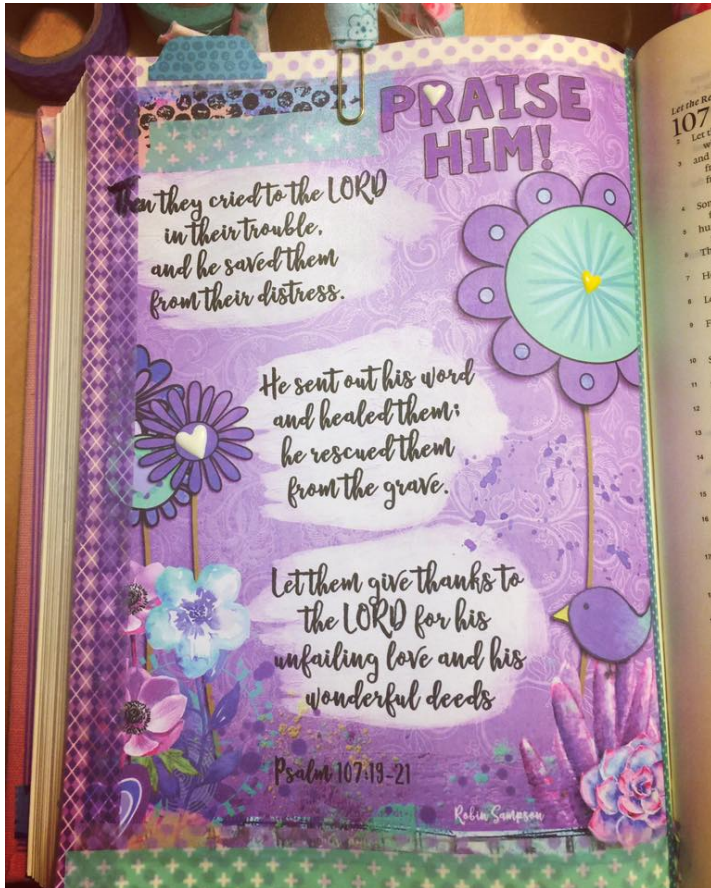 PRAISE
HIM!
Then they cried to the LORD
in their trouble,
and he saved them
from their distress.
He sent out his word
and healed them;
he rescued them
from the grave.
Let them give thanks to
the LORD for his
unfailing love and his
wonderful deeds
Psalm 107:19-21
Robin Sampson
Let the Re
107
2 Let t
w
3 and
fr
fr
4 Son
f
5 hu
6 Th
7 H
8 L
9 F
10 S
11
12
13
14
15
16
17